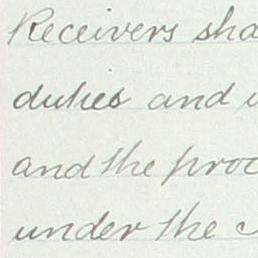 Receivers sha
duties and
and the proc
under the